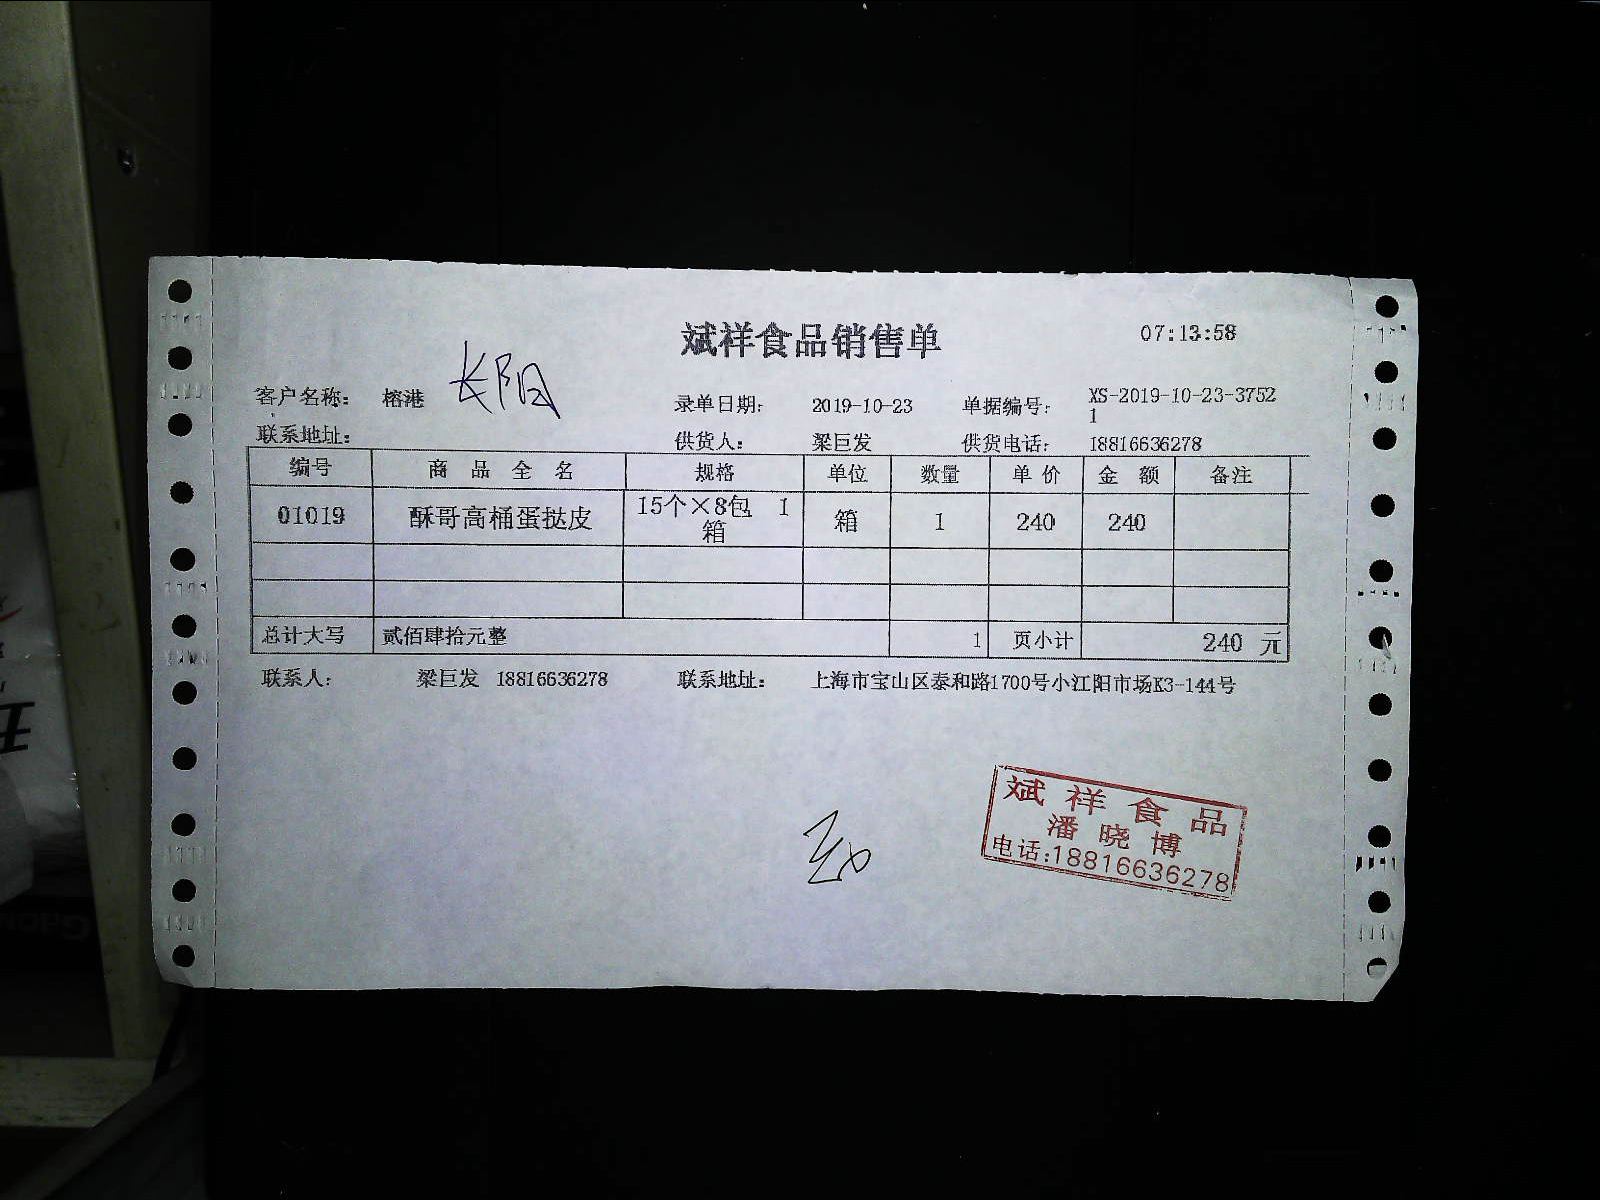 斌祥食品销售单
07:13:58
客户名称： 榕港 长阳 录单日期： 2019-10-23 单据编号： XS-2019-10-23-3752
1
联系地址： 供货人： 梁巨发 供货电话： 18816636278
编号 商品全名 规格 单位 数量 单价 金额 备注
01019 酥哥高桶蛋挞皮 15个×8包 1 箱 箱 1 240 240
总计大写 贰佰肆拾元整 1 页小计 240 元
联系人： 梁巨发 18816636278 联系地址： 上海市宝山区泰和路1700号小江阳市场K3-144号
斌祥食品
潘晓博
电话:18816636278